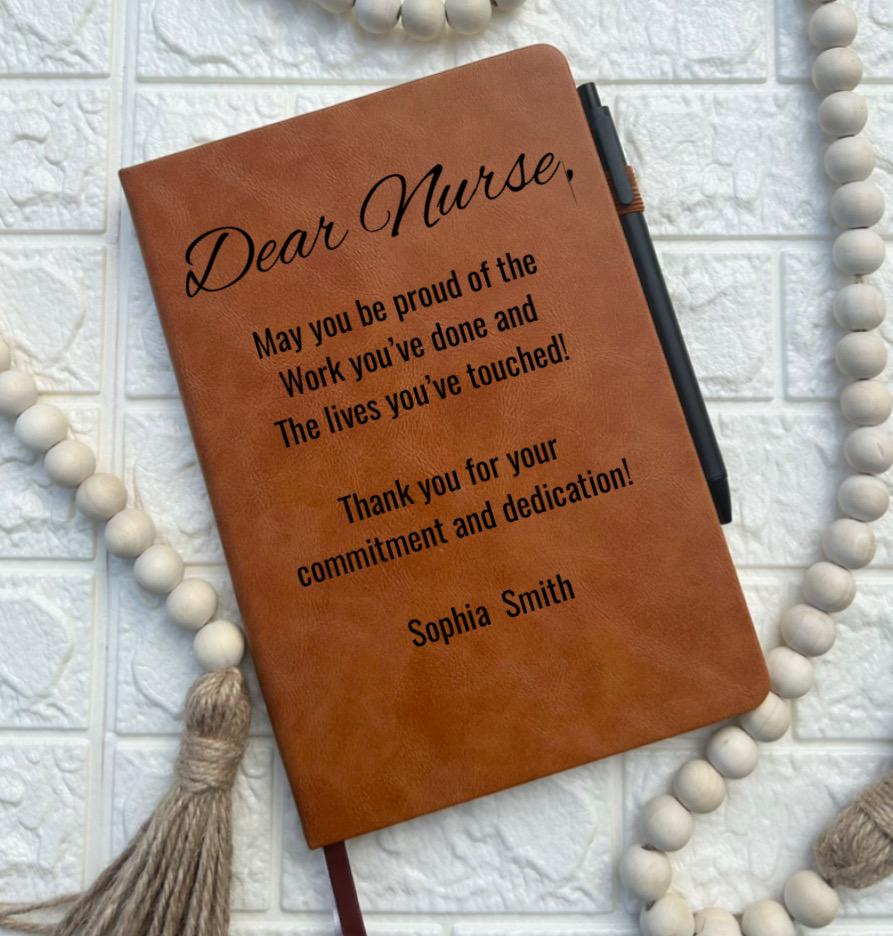 Dear Nurse,
May you be proud of the
Work you've done and
The lives you've touched!
Thank you for your
commitment and dedication!
Sophia Smith